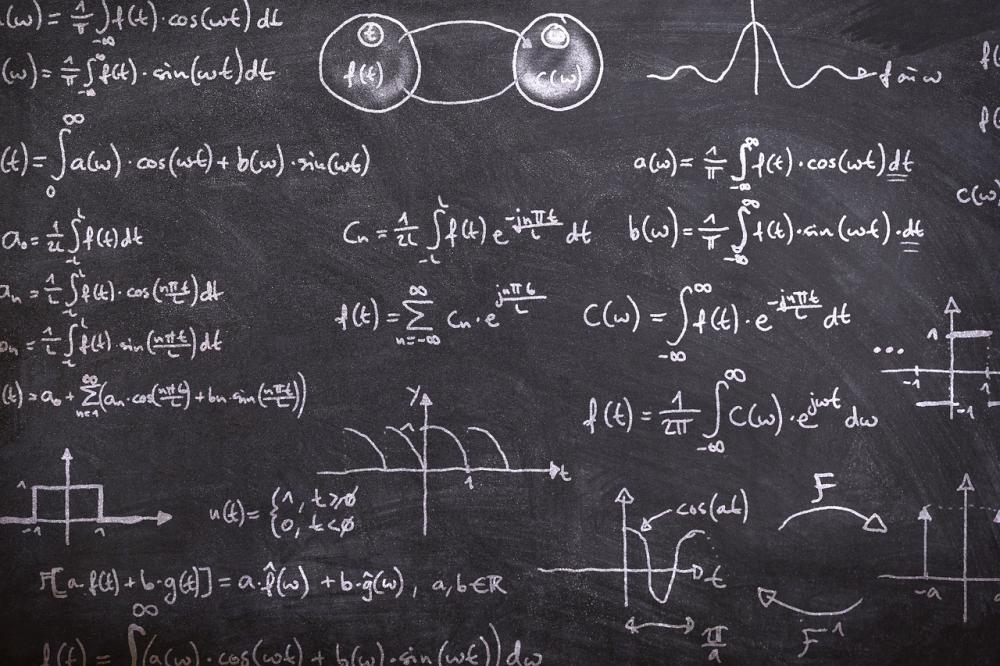 (ω) = 1/π ∫_{-∞} f(t)·cos(ωt) dt
(ω) = 1/π ∫_{-∞}^{∞} f(t)·sin(ωt) dt
t
f(t)
ω
c(ω)
f(t) = ∫_0^∞ a(ω)·cos(ωt) + b(ω)·sin(ωt)
a(ω) = 1/π ∫_{-∞}^{∞} f(t)·cos(ωt) dt
c(ω)
a₀ = 1/2L ∫_{-L}^{L} f(t) dt
Cn = 1/2L ∫_{-L}^{L} f(t) e^{-jnπt/L} dt
b(ω) = 1/π ∫_{-∞}^{∞} f(t)·sin(ωt)·dt
an = 1/L ∫_{-L}^{L} f(t)·cos(nπt/L) dt
f(t) = ∑_{n=-∞}^{∞} Cn·e^{jnπt/L}
C(ω) = ∫_{-∞}^{∞} f(t)·e^{-jnπt/L} dt
bn = 1/L ∫_{-L}^{L} f(t)·sin(nπt/L) dt
... 1 -1 1 -1
(t) = a₀ + ∑_{n=1}^{∞} (an·cos(nπt/L) + bn·sin(nπt/L))
f(t) = 1/2π ∫_{-∞}^{∞} C(ω)·e^{jωt} dω
y 1 1 t
1 -1 1
u(t) = {1, t≥0
0, t<0
cos(at)
t
π/a
F
F⁻¹
-a
F[a·f(t) + b·g(t)] = a·f̂(ω) + b·ĝ(ω), a,b∈ℝ
f(t) = ∫^∞ (a(ω)·cos(ωt) + b(ω)·sin(ωt)) dω